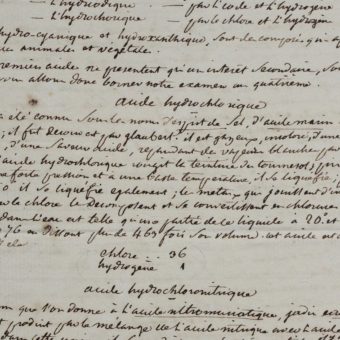 L'hydriodique — par l'iode et l'hydrogène
L'hydrochlorique — par le chlore et l'hydrogène
hydro-cyanique et hydroxanthique, sont de composés qui
animales et végétale.
premiers acide ne présentent qu'un intérêt secondaire,
allons donc borner notre examen au quatrième
acide hydrochlorique
a été connu sous les noms d'esprit de sel, d'acide marin
; il fut découvert par glauber. il est gazeux, incolore, d'une
, d'une saveur acide, répandant de vapeurs blanches
acide hydrochlorique rougit la teinture de tournesol,
forte pression et à une basse température, il se liquéfie;
0° il se liquéfie également; le métaux qui jouissent
le chlore le décomposent et se convertissent en chlorure
dans l'eau est telle qu'une partie de ce liquide à 20° et
76 en dissout plus de 463 fois son volume. cet acide est
de
chlore .. 36
hydrogène 1
acide hydrochloronitrique
nom que l'on donne à l'acide nitromuriatique, jadis
est produit par le mélange de l'acide nitrique avec l'acide